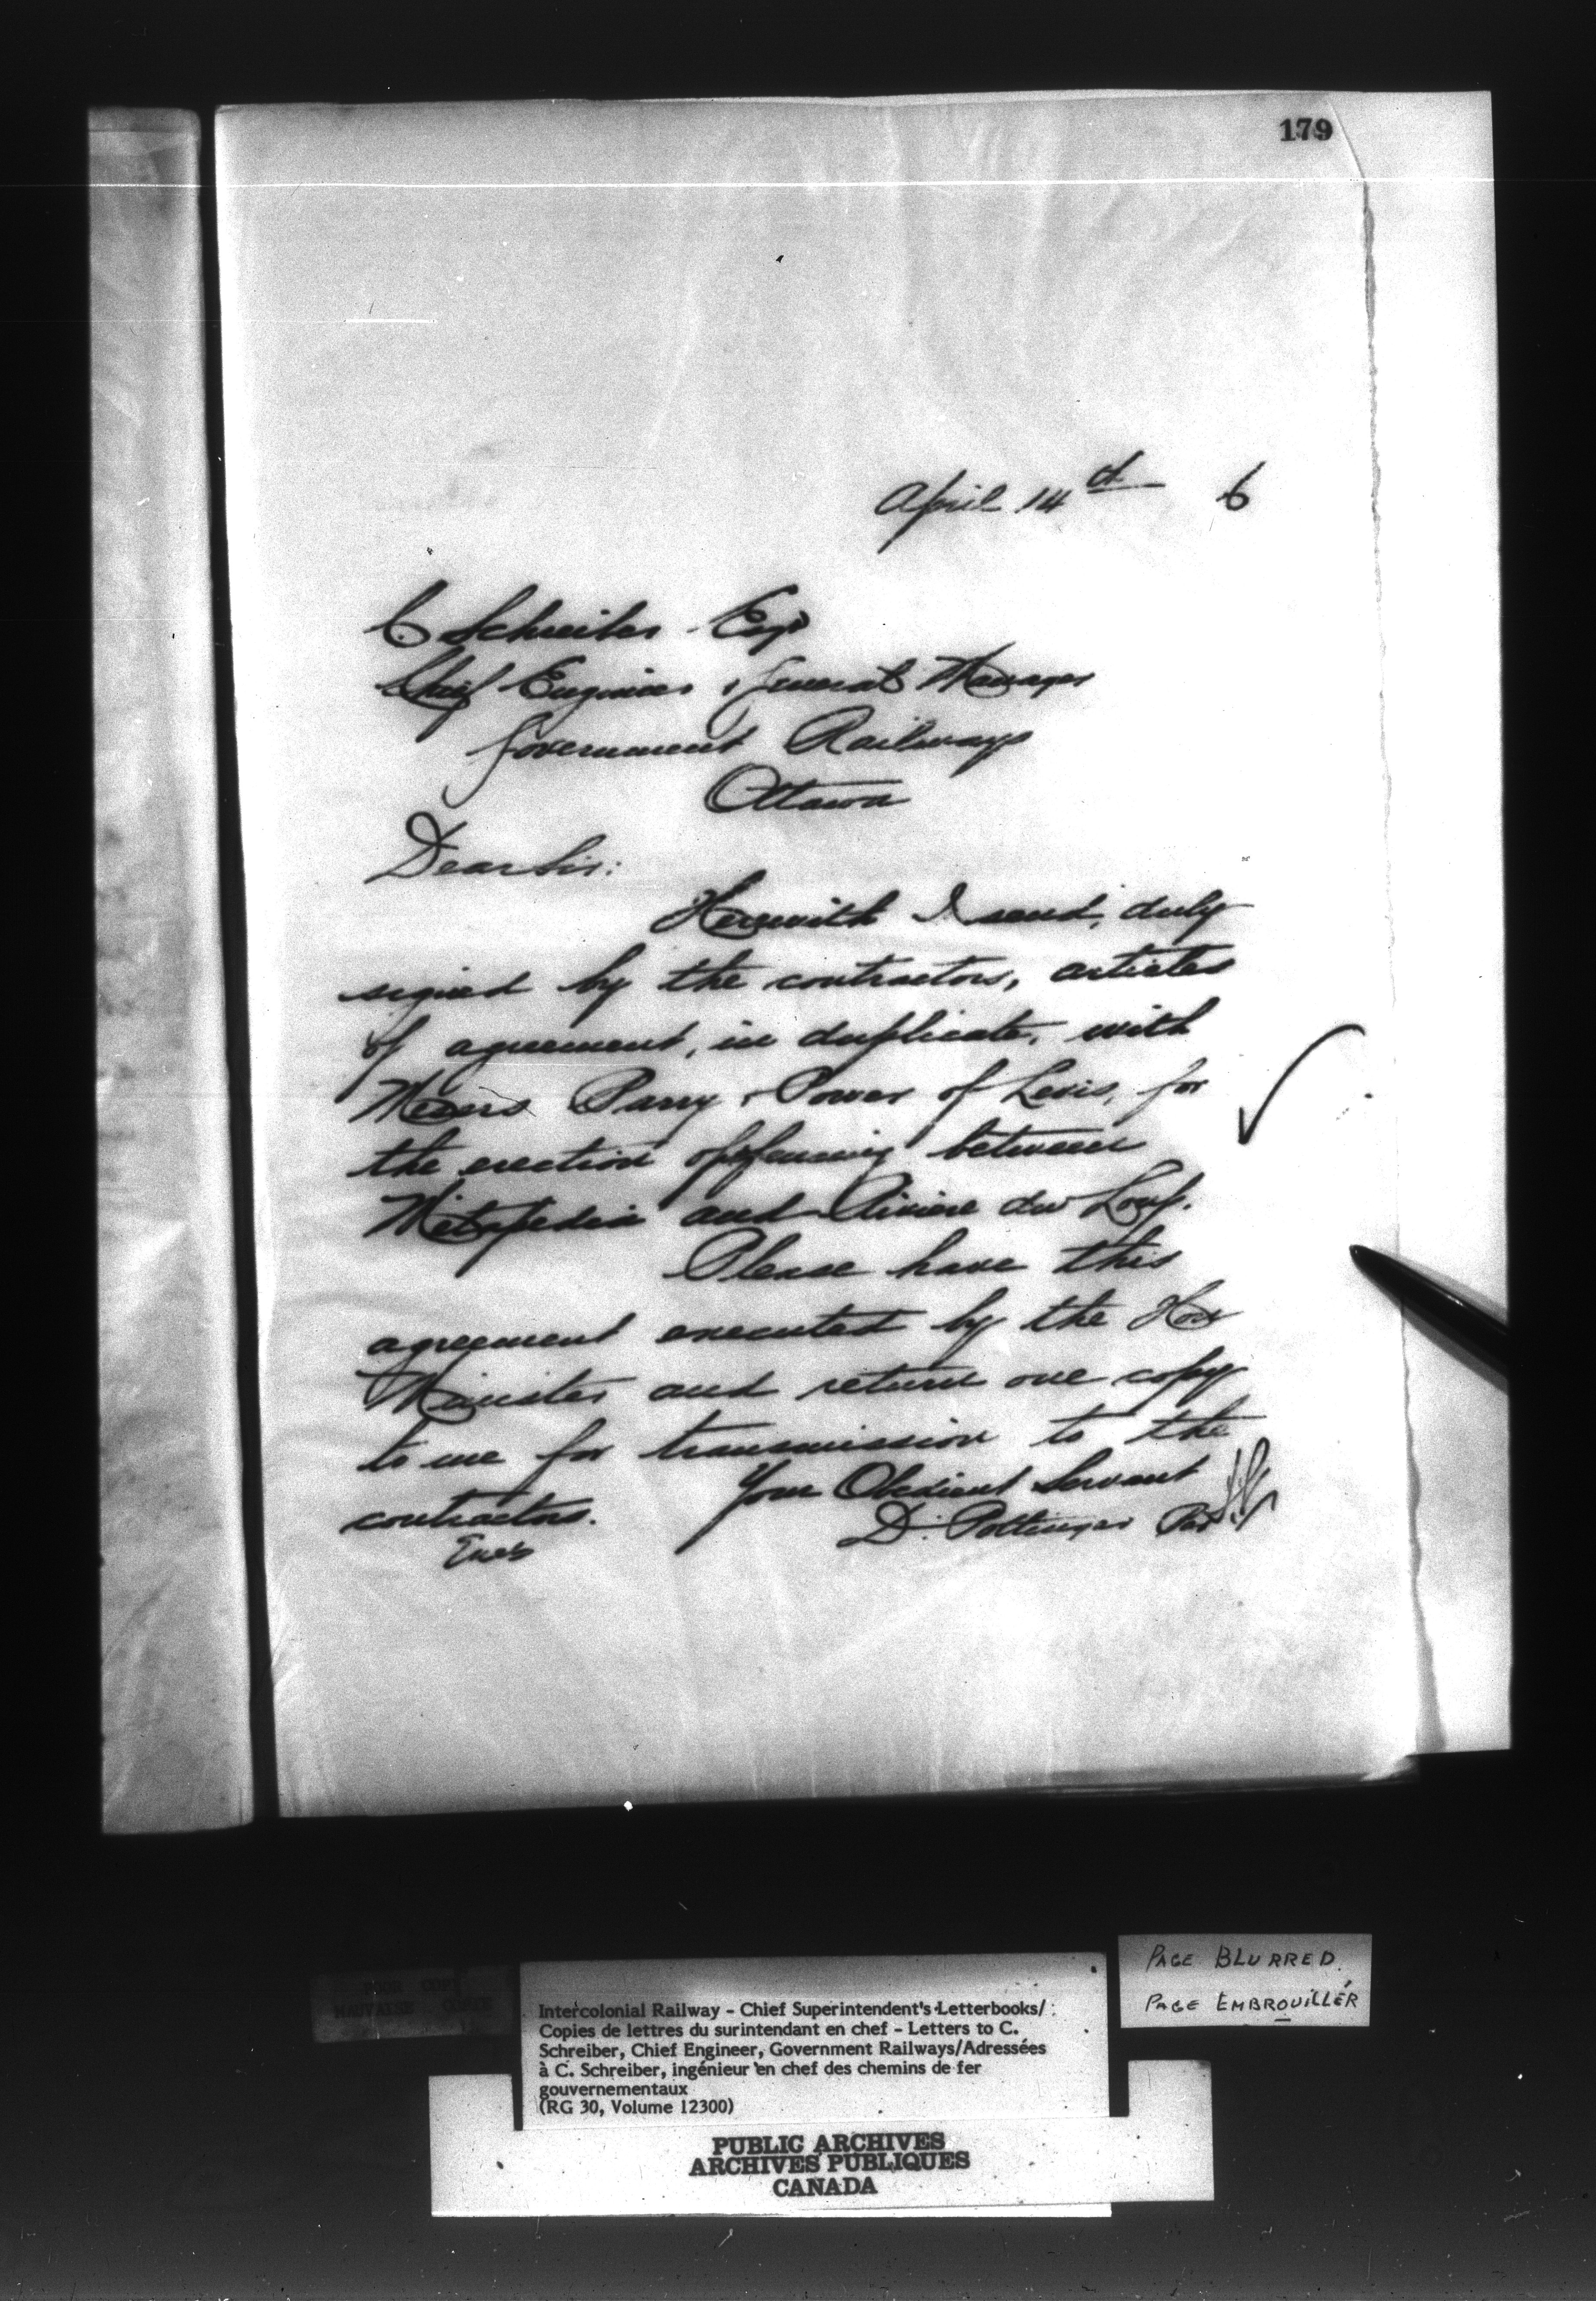 179
April 14th 6
C Schreiber Esqr
Chief Engineer & General Manager
Government Railways
Ottawa
Dear Sir:
Herewith I send, duly
signed by the contractors, articles
of agreement, in duplicate, with
Messrs Parry & Power of Levis, for
the erection of fencing between
Metapedia and Riviere du Loup.
Please have this
agreement executed by the Hon
Minister and return one copy
to me for transmission to the
contractors.
Your Obedient Servant
D. Pottinger Per
Encls
PAGE BLURRED.
PAGE EMBROUILLÉR
POOR COPY
MAUVAISE COPIE
Intercolonial Railway - Chief Superintendent's Letterbooks/
Copies de lettres du surintendant en chef - Letters to C.
Schreiber, Chief Engineer, Government Railways/Adressées
à C. Schreiber, ingénieur en chef des chemins de fer
gouvernementaux
(RG 30, Volume 12300)
PUBLIC ARCHIVES
ARCHIVES PUBLIQUES
CANADA